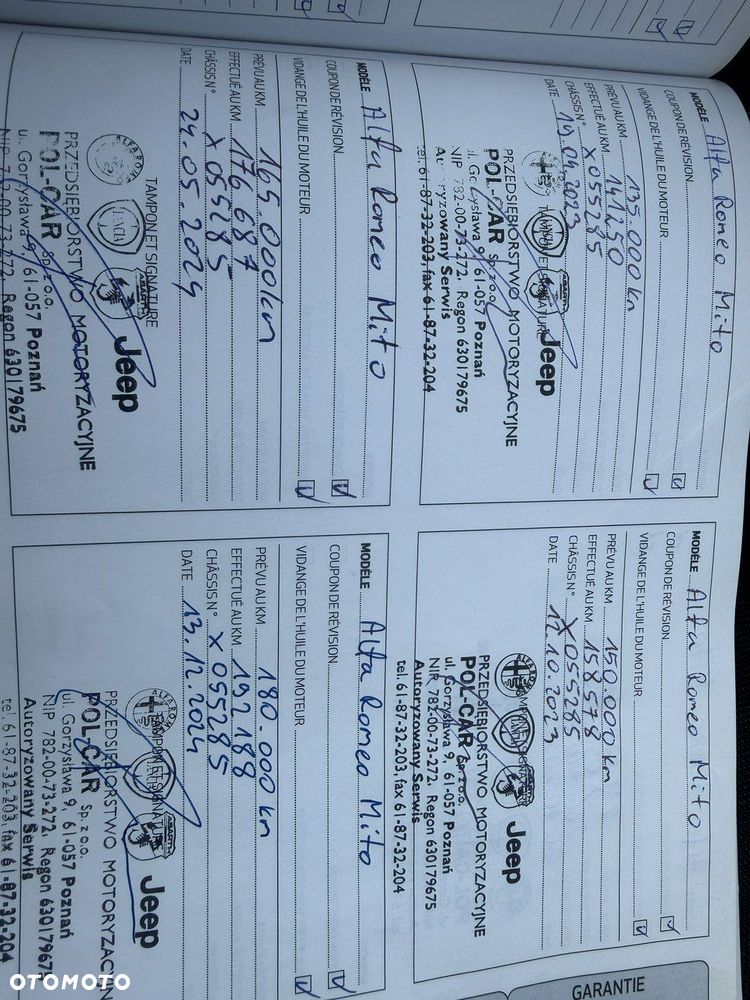 MODÈLE Alfa Romeo Mito
COUPON DE RÉVISION
VIDANGE DE L'HUILE DU MOTEUR
PRÉVU AU KM 135.000 km
EFFECTUÉ AU KM 141250
CHÂSSIS N° X055285
DATE 19.04.2023
TAMPON ET SIGNATURE
Jeep
PRZEDSIĘBIORSTWO MOTORYZACYJNE
POL-CAR Sp. z o.o.
ul. Gorzysława 9, 61-057 Poznań
NIP 782-00-73-272, Regon 630179675
Autoryzowany Serwis
tel. 61-87-32-203, fax 61-87-32-204
MODÈLE Alfa Romeo Mito
COUPON DE RÉVISION
VIDANGE DE L'HUILE DU MOTEUR
PRÉVU AU KM 150.000 km
EFFECTUÉ AU KM 158578
CHÂSSIS N° X055285
DATE 12.10.2023
Jeep
PRZEDSIĘBIORSTWO MOTORYZACYJNE
POL-CAR Sp. z o.o.
ul. Gorzysława 9, 61-057 Poznań
NIP 782-00-73-272, Regon 630179675
Autoryzowany Serwis
tel. 61-87-32-203, fax 61-87-32-204
MODÈLE Alfa Romeo Mito
COUPON DE RÉVISION
VIDANGE DE L'HUILE DU MOTEUR
PRÉVU AU KM 165.000km
EFFECTUÉ AU KM 176687
CHÂSSIS N° X055285
DATE 24.05.2024
TAMPON ET SIGNATURE
LANCIA ABARTH Jeep
PRZEDSIĘBIORSTWO MOTORYZACYJNE
POL-CAR Sp. z o.o.
ul. Gorzysława 9, 61-057 Poznań
NIP 782-00-73-272, Regon 630179675
MODÈLE Alfa Romeo Mito
COUPON DE RÉVISION
VIDANGE DE L'HUILE DU MOTEUR
PRÉVU AU KM 180.000 km
EFFECTUÉ AU KM 192188
CHÂSSIS N° X055285
DATE 13.12.2024
TAMPON ET SIGNATURE
ABARTH Jeep
PRZEDSIĘBIORSTWO MOTORYZACYJNE
POL-CAR Sp. z o.o.
ul. Gorzysława 9, 61-057 Poznań
NIP 782-00-73-272, Regon 630179675
Autoryzowany Serwis
tel. 61-87-32-203, fax 61-87-32-204
GARANTIE
OTOMOTO